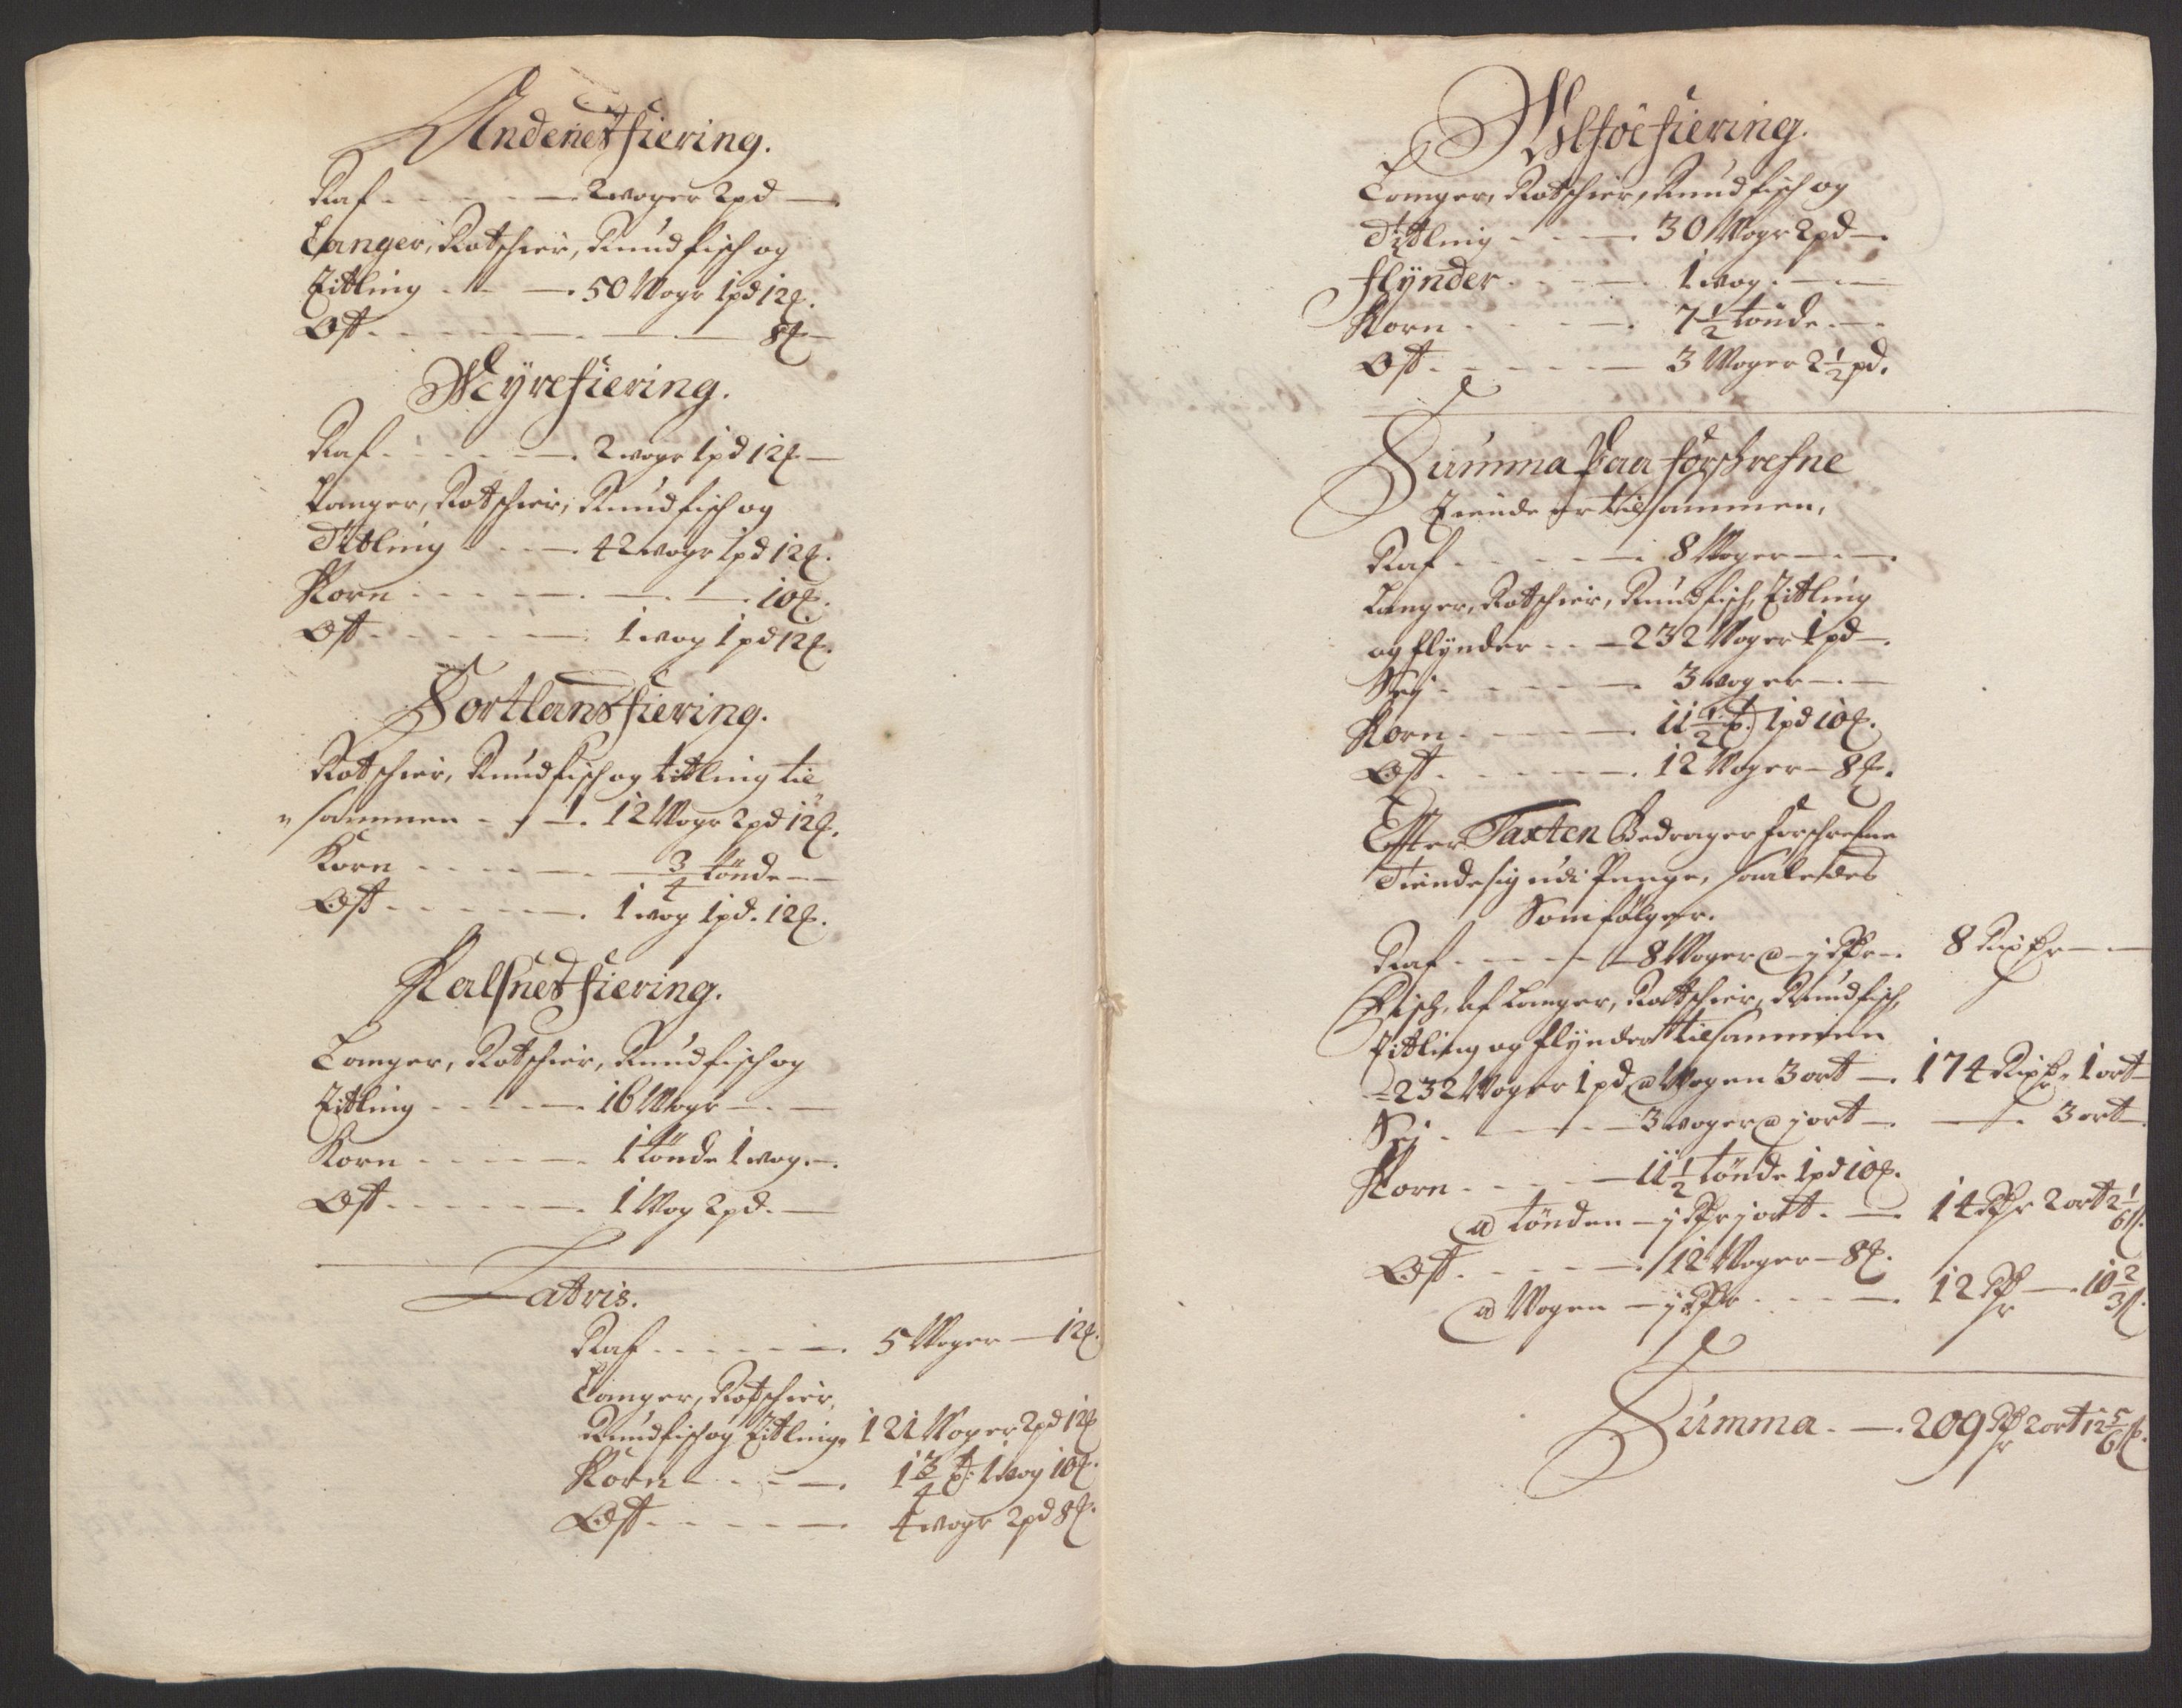 Andenes fiering.
Raf - - - - - 2 woger 2 pd —
Langer, Rotschier, Rundfisch og
Titling - - - 50 Wogr 1 pd 12 ℔.
Ost - - - - - 8 ℔ —
Myre fiering.
Raf - - - - - 2 wogr 1 pd 12 ℔ —
Langer, Rotschier, Rundfisch og
Titling - - - 42 wogr 1 pd 12 ℔.
Korn - - - - - 10 ℔.
Ost - - - - - 1 wog 1 pd 12 ℔.
Sortlands fiering.
Rotschier, Rundfisch og titling til
" sammen - - - 12 Wogr 2 pd 12 ℔.
Korn - - - - - 3/4 tönde —
Ost - - - - - 1 wog 1 pd. 12 ℔.
Kalsnes fiering.
Langer, Rotschier, Rundfisch og
Titling - - - - 16 Wogr —
Korn - - - - - 1 tönde 1 wog. —
Ost - - - - - 1 Wog 2 pd. —
Latris.
Raf - - - - - 5 Woger — 12 ℔.
Langer, Rotschier,
Rundfisch og Titling, 121 Woger 2 pd 12 ℔
Korn - - - - 1 3/4 t: 1 wog 10 ℔.
Ost - - - - - 4 wogr 2 pd 8 ℔.
Ulföe fiering.
Langer, Rotschier, Rundfisch og
Titling - - - 30 Wogr 2 pd —
flÿnder - - - - 1 wog. —
Korn - - - - - 7 1/2 tönde. —
Ost - - - - - 3 Woger 2 1/2 pd.
Summa Paa forschrefne
Tiende er tilsammen,
Raf - - - - - 8 Woger —
Langer, Rotschier, Rundfisch, Titling
og flÿnder - - - 232 Woger 1 pd —
Sej - - - - - 3 woger —
Korn - - - - - 11 1/2 t: 1 pd 10 ℔.
Ost - - - - - 12 Woger — 8 ℔.
Effter Taxten Bedrager forschrefne
Tiende sig udi Penge, saaledes
Som følger.
Raf - - - - 8 Woger a — j Rdr — 8 Rixdr —
Fisch, af Langer, Rotschier, Rundfisch,
Titling og flÿnder tilsammen
232 Woger 1 pd, a Wogen 3 ort — 174 Rixdr, 1 ort —
Sej - - - - 3 woger a j ort — 3 ort —
Korn - - - - 11 1/2 tönde 1 pd 10 ℔.
a tönden — j Rdr j ort - — 14 Rdr 2 ort 2 1/6 ß.
Ost - - - - 12 Woger — 8 ℔.
a Wogen — j Rdr - - — 12 Rdr — 10 2/3 ß.
Summa - — 209 Rdr 2 ort 12 5/6 ß.